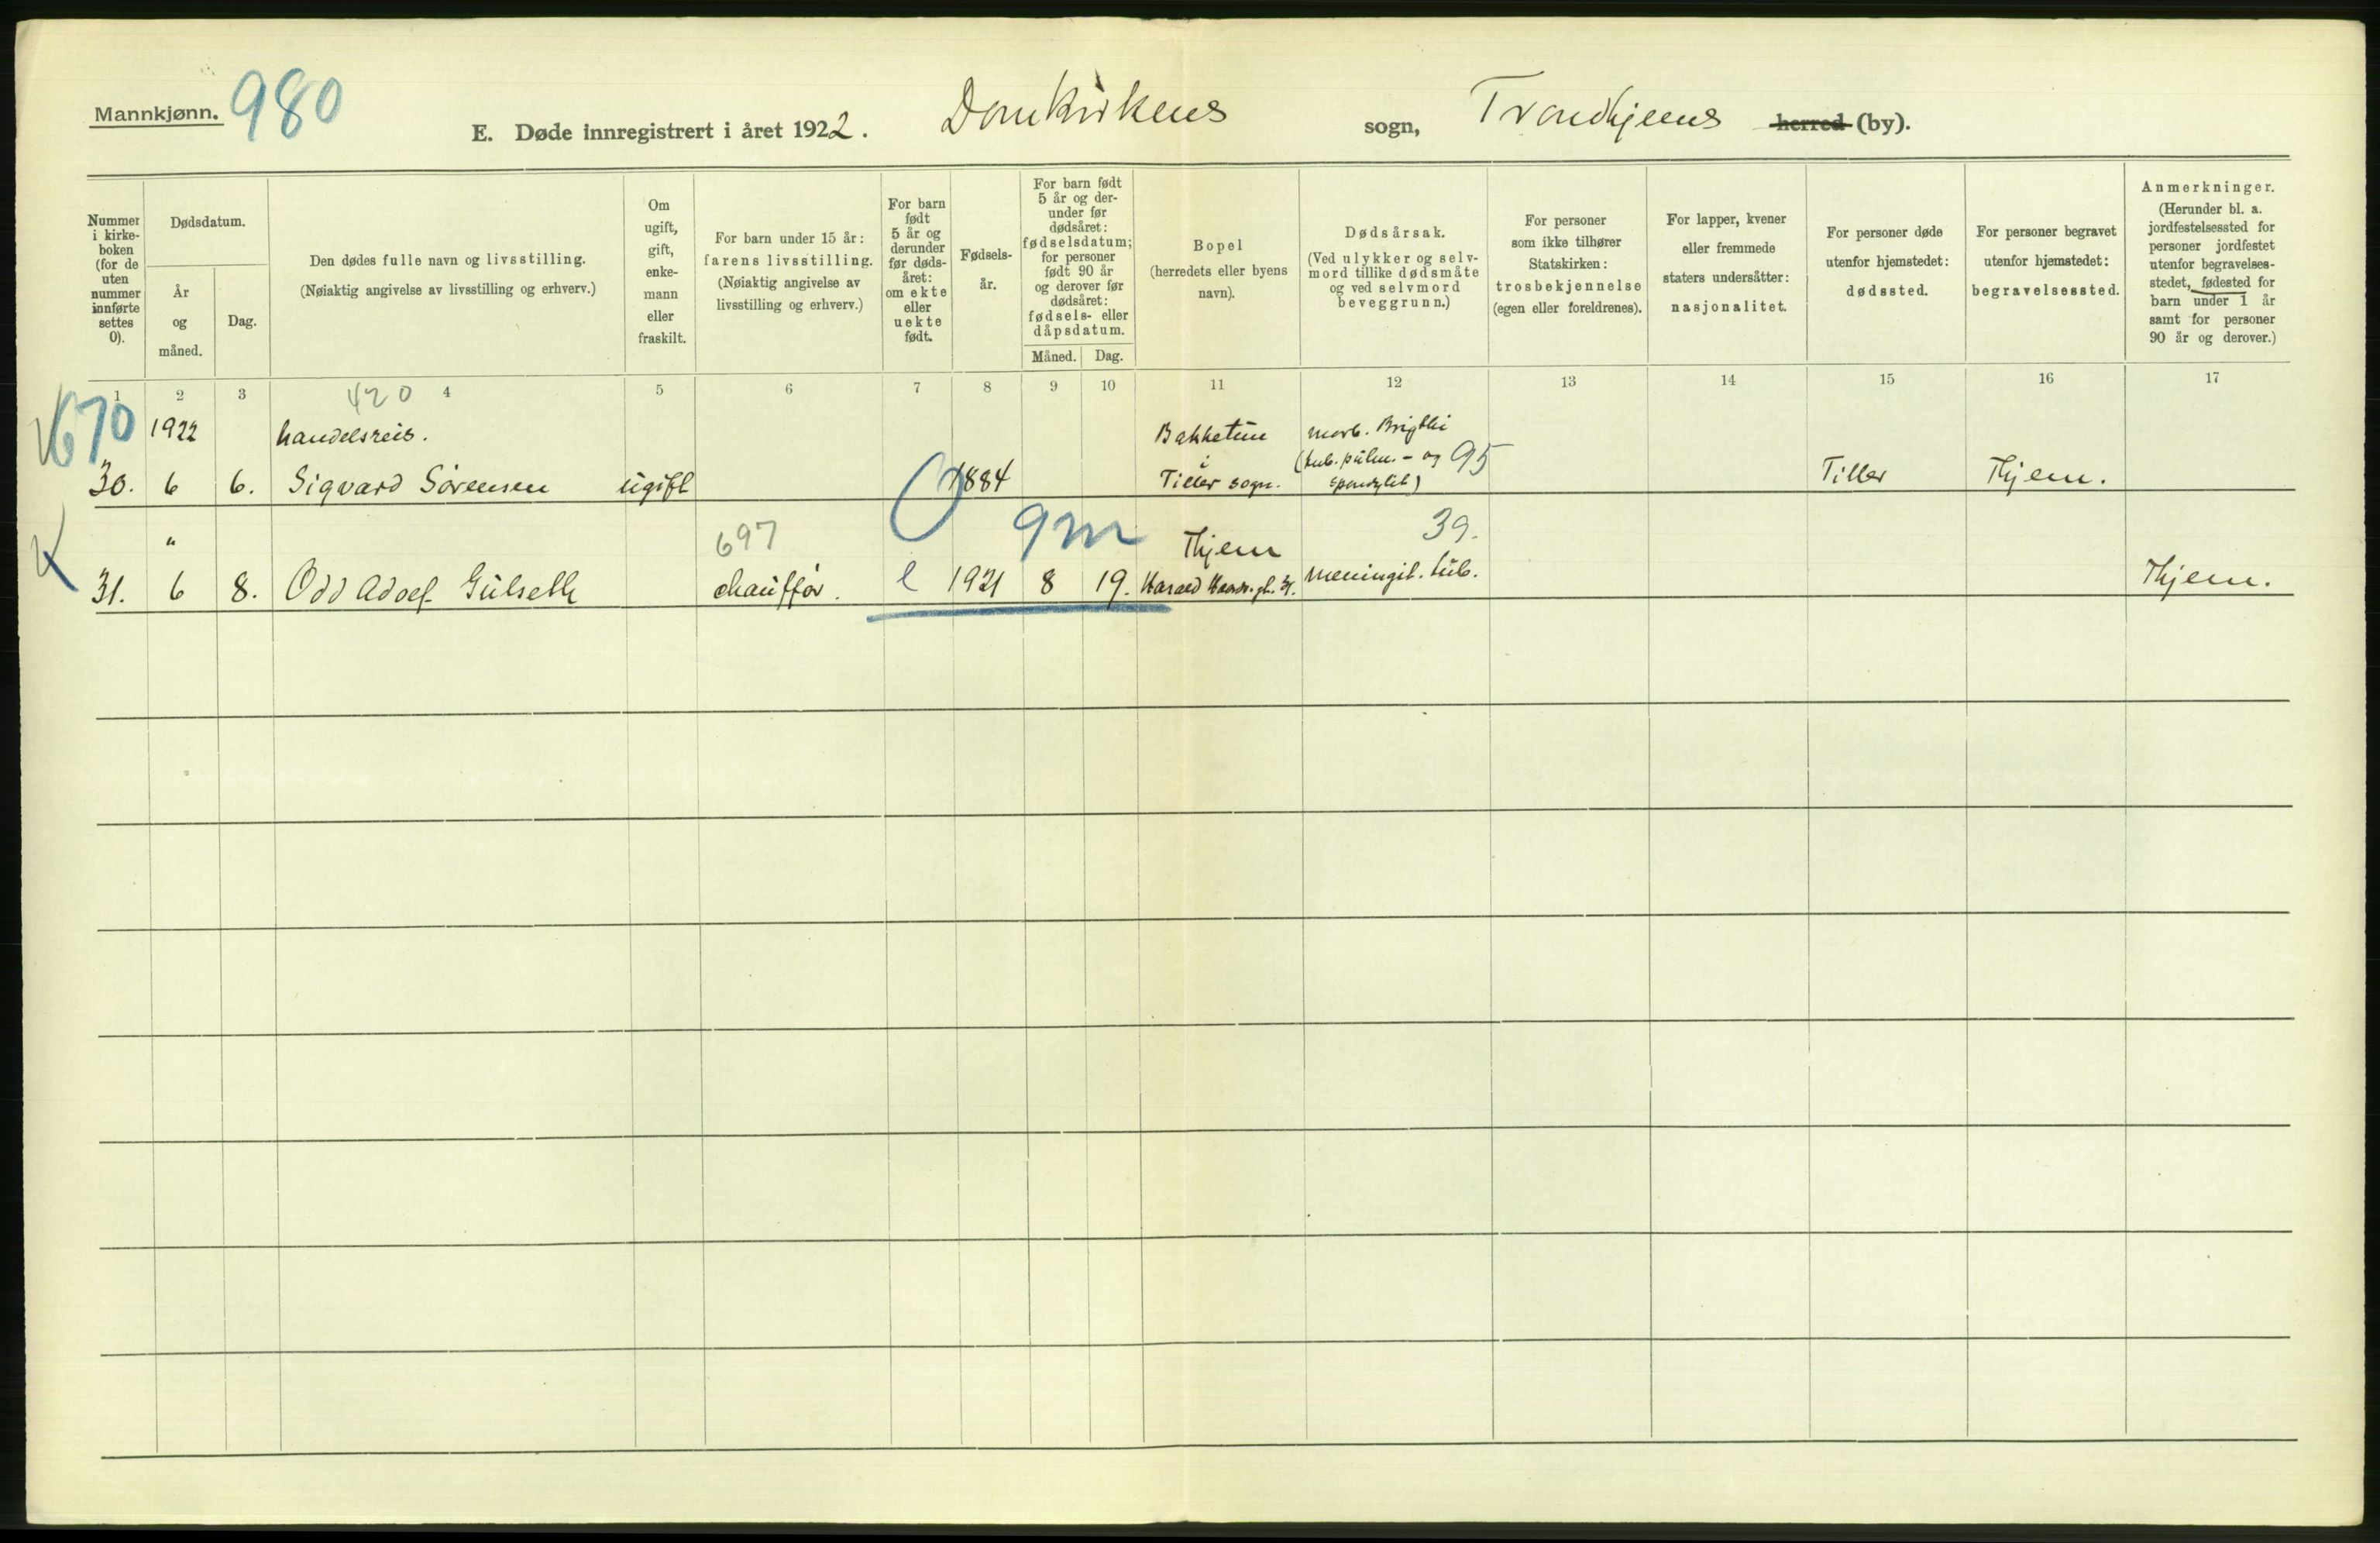 Mannkjønn. 980
E. Døde innregistrert i året 1922. Domkirkens sogn, Trondhjems herred (by).
Nummer i kirke- boken (for de uten nummer innførte settes 0).
Dødsdatum.
År og måned.
Dag.
Den dødes fulle navn og livsstilling.
(Nøiaktig angivelse av livsstilling og erhverv.)
Om ugift, gift, enke- mann eller fraskilt.
For barn under 15 år:
farens livsstilling.
(Nøiaktig angivelse av
livsstilling og erhverv.)
For barn født 5 år og derunder før døds- året: om ekte eller uekte født.
Fødsels- år.
For barn født 5 år og der- under før dødsåret: fødselsdatum; for personer født 90 år og derover før dødsåret: fødsels- eller dåpsdatum.
Måned. Dag.
Bopel
(herredets eller byens
navn).
Dødsårsak.
(Ved ulykker og selv-
mord tillike dødsmåte
og ved selvmord
beveggrunn.)
For personer
som ikke tilhører
Statskirken:
trosbekjennelse
(egen eller foreldrenes).
For lapper, kvener
eller fremmede
staters undersåtter:
nasjonalitet.
For personer døde
utenfor hjemstedet:
dødssted.
For personer begravet
utenfor hjemstedet:
begravelsessted.
Anmerkninger.
(Herunder bl. a.
jordfestelsessted for
personer jordfestet
utenfor begravelses-
stedet, fødested for
barn under 1 år
samt for personer
90 år og derover.)
1 2 3 4 5 6 7 8 9 10 11 12 13 14 15 16 17
420
670
1922 handelsreis. Bakketun morb. Brightii
i (tub. pulm. - og 95
30. 6 6. Sigvard Sörensen ugift 1884 Tiller sogn. spondylit) Tiller Thjem.
" 697 9m Thjem 39.
31. 6 8. Odd Adolf Gulseth chauffør. e 1921 8 19. Harald gt. 31. meningit. tub. Thjem.